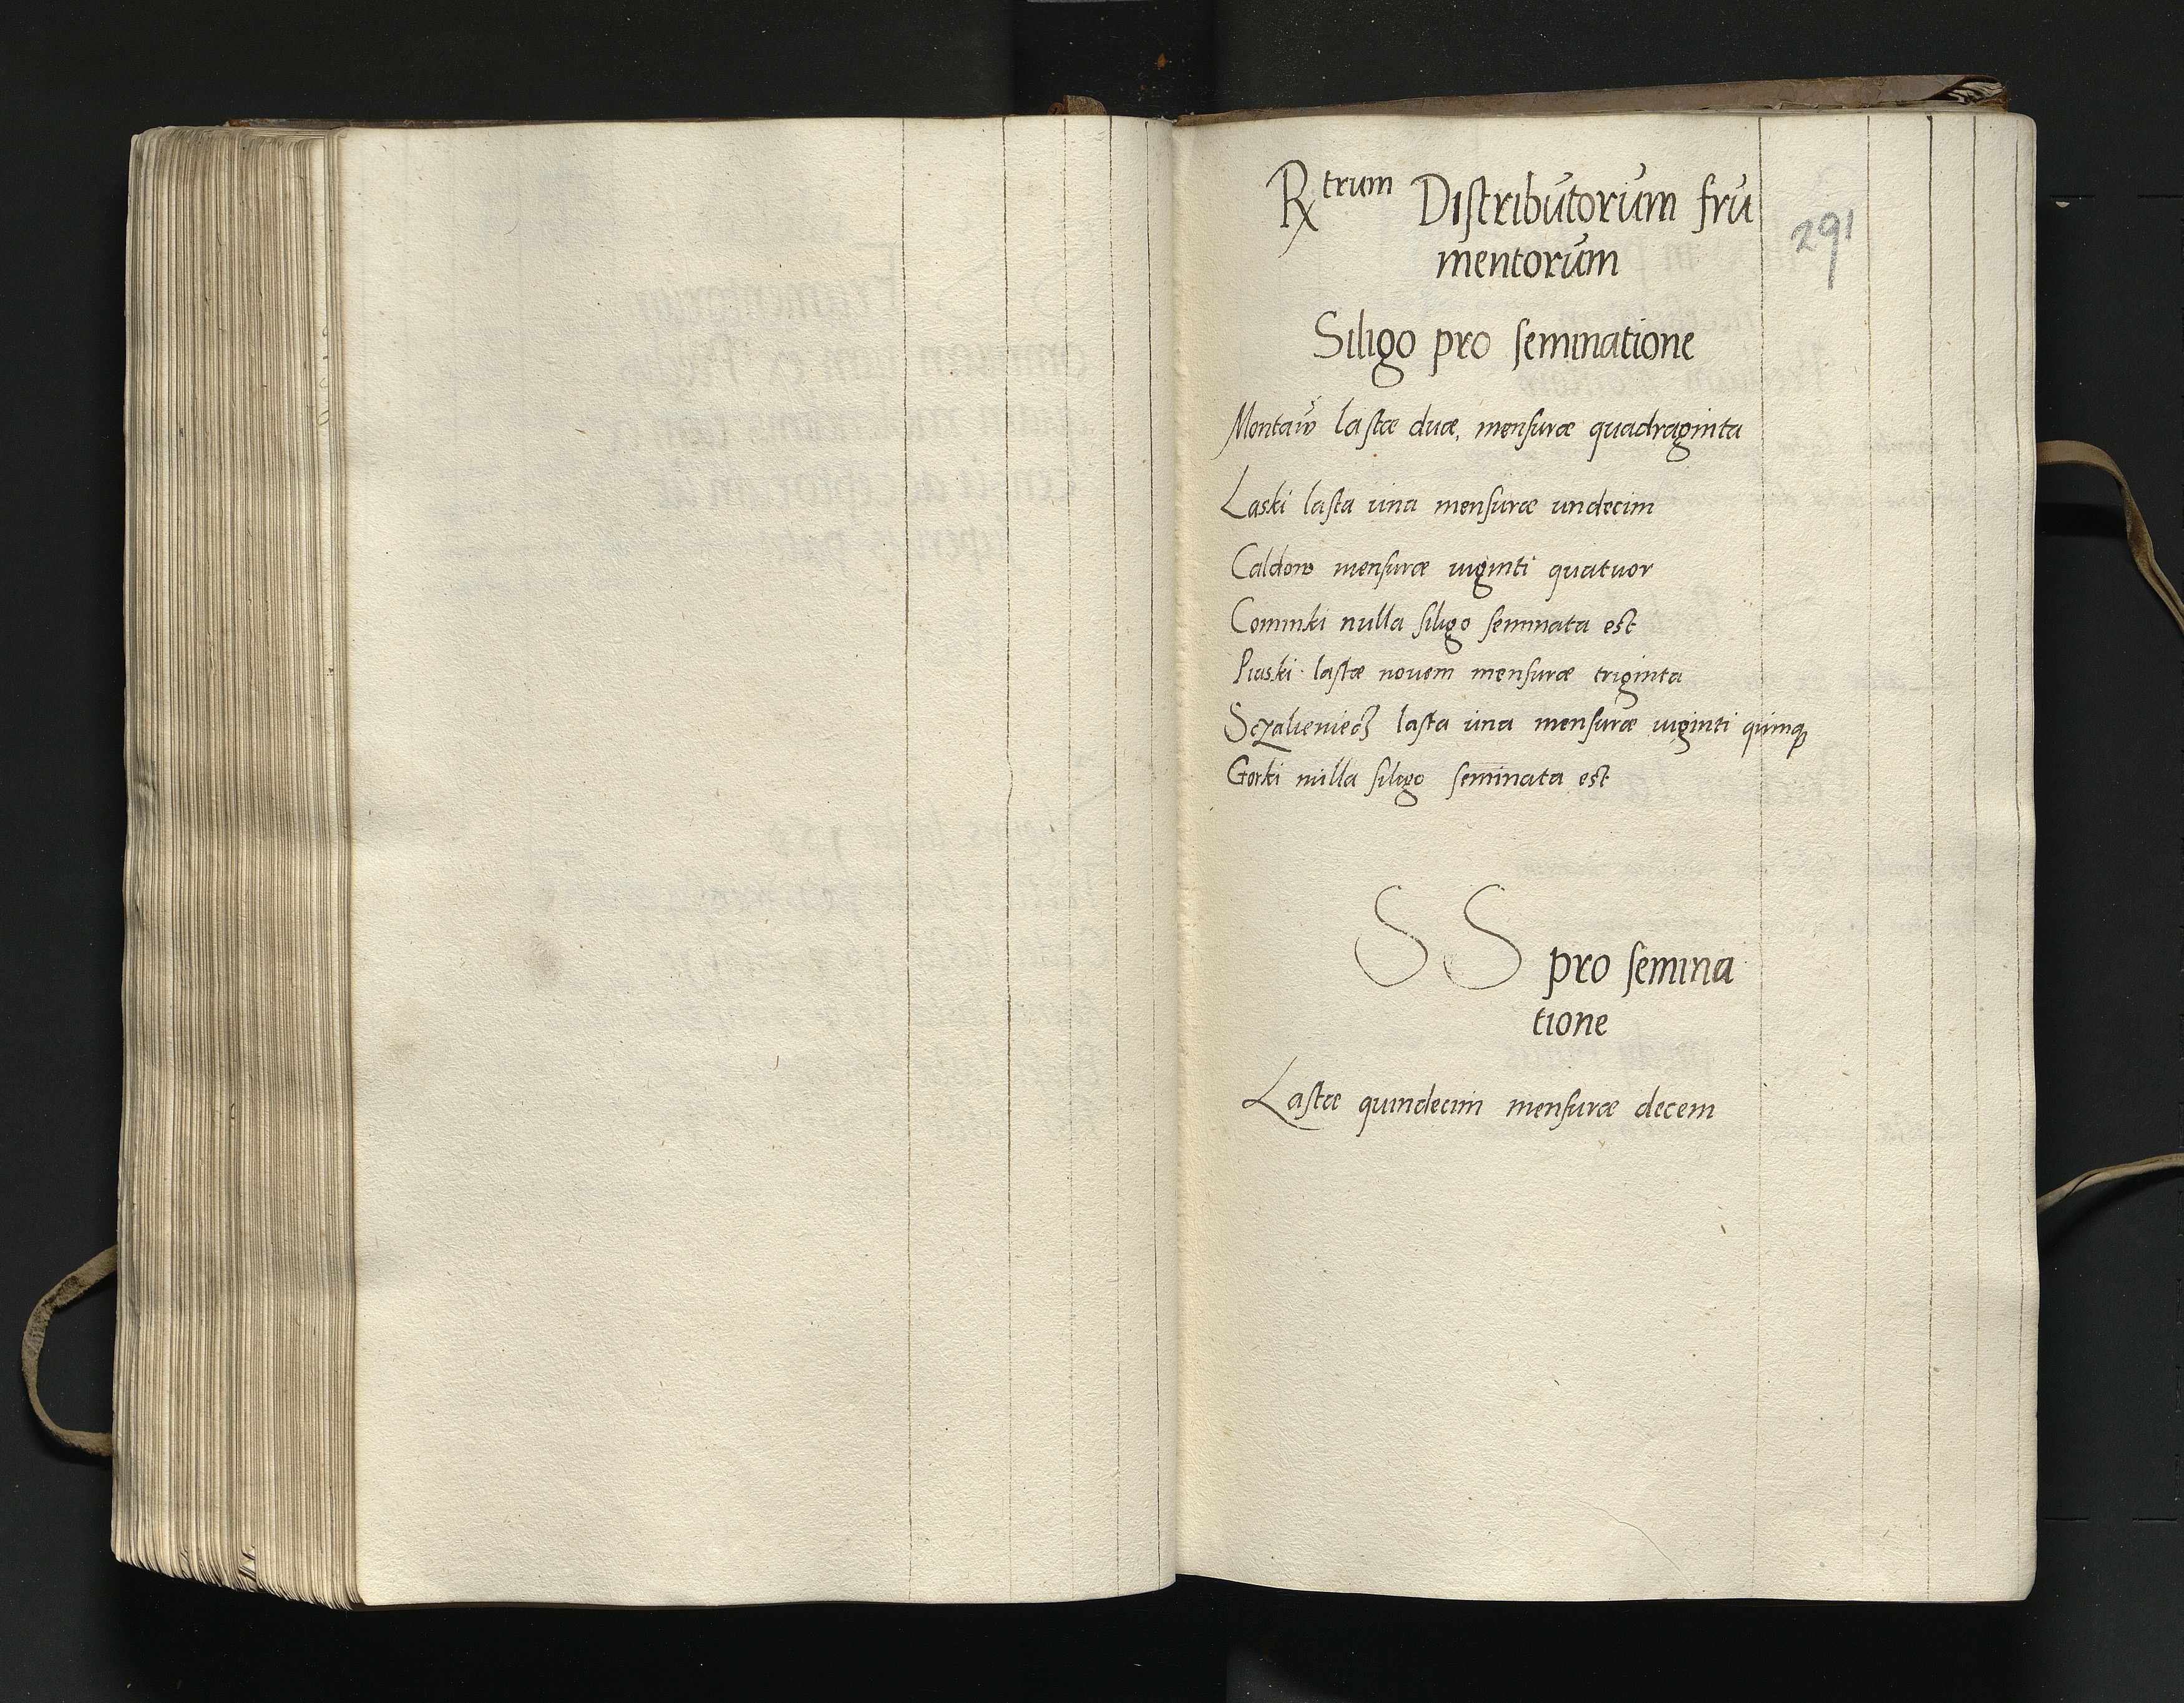 Rtrum Distributorum fru
291
mentorum
Siligo pro seminatione
Montaw lastæ duæ, mensuræ quadraginta
Laski lasta una mensuræ undecim
Caldow mensuræ viginti quatuor
Cominki nulla siligo seminata est
Piaski lastæ novem mensuræ triginta
lasta una mensuræ viginti quinq
Gorki nulla siligo seminata est
SS pro semina
tione
Lastæ quindecim mensuræ decem